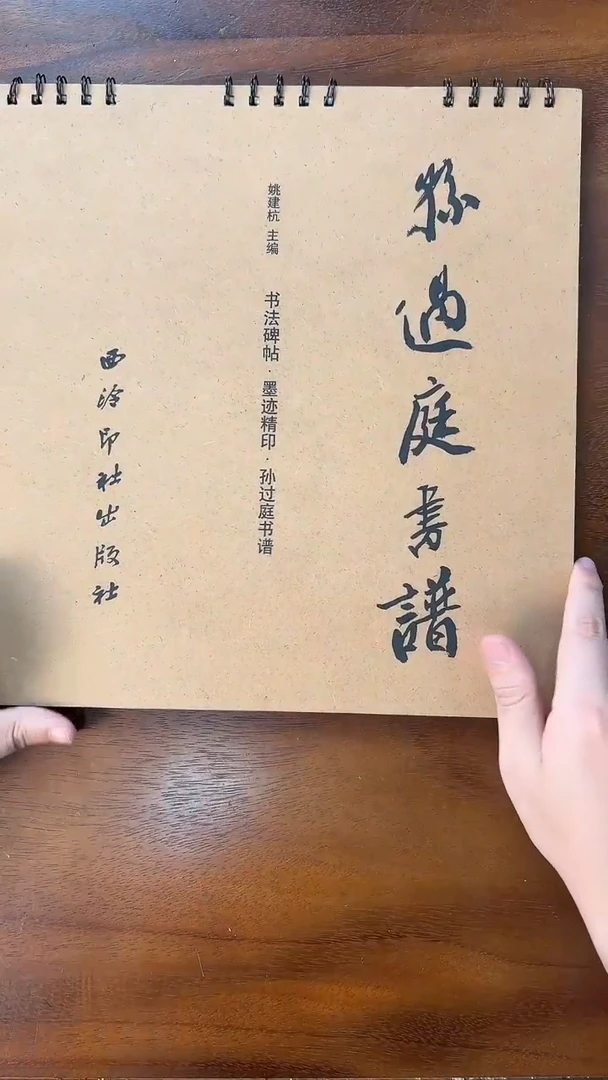 孫過庭書譜
姚建杭 主编
书法碑帖·墨迹精印·孙过庭书谱
西泠印社出版社